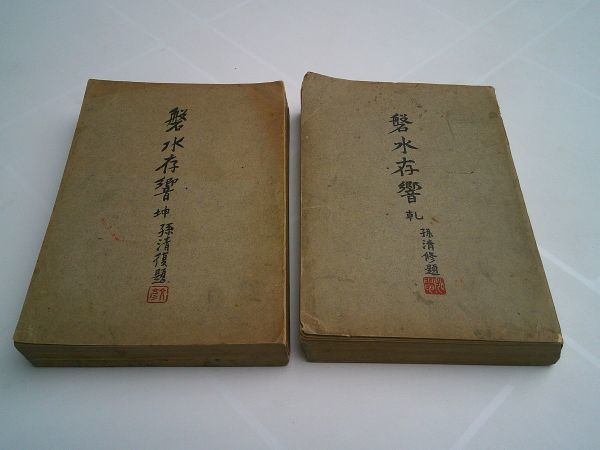 磐水存響 乾
孫 清修題
磐水存響 坤
孫 清復題